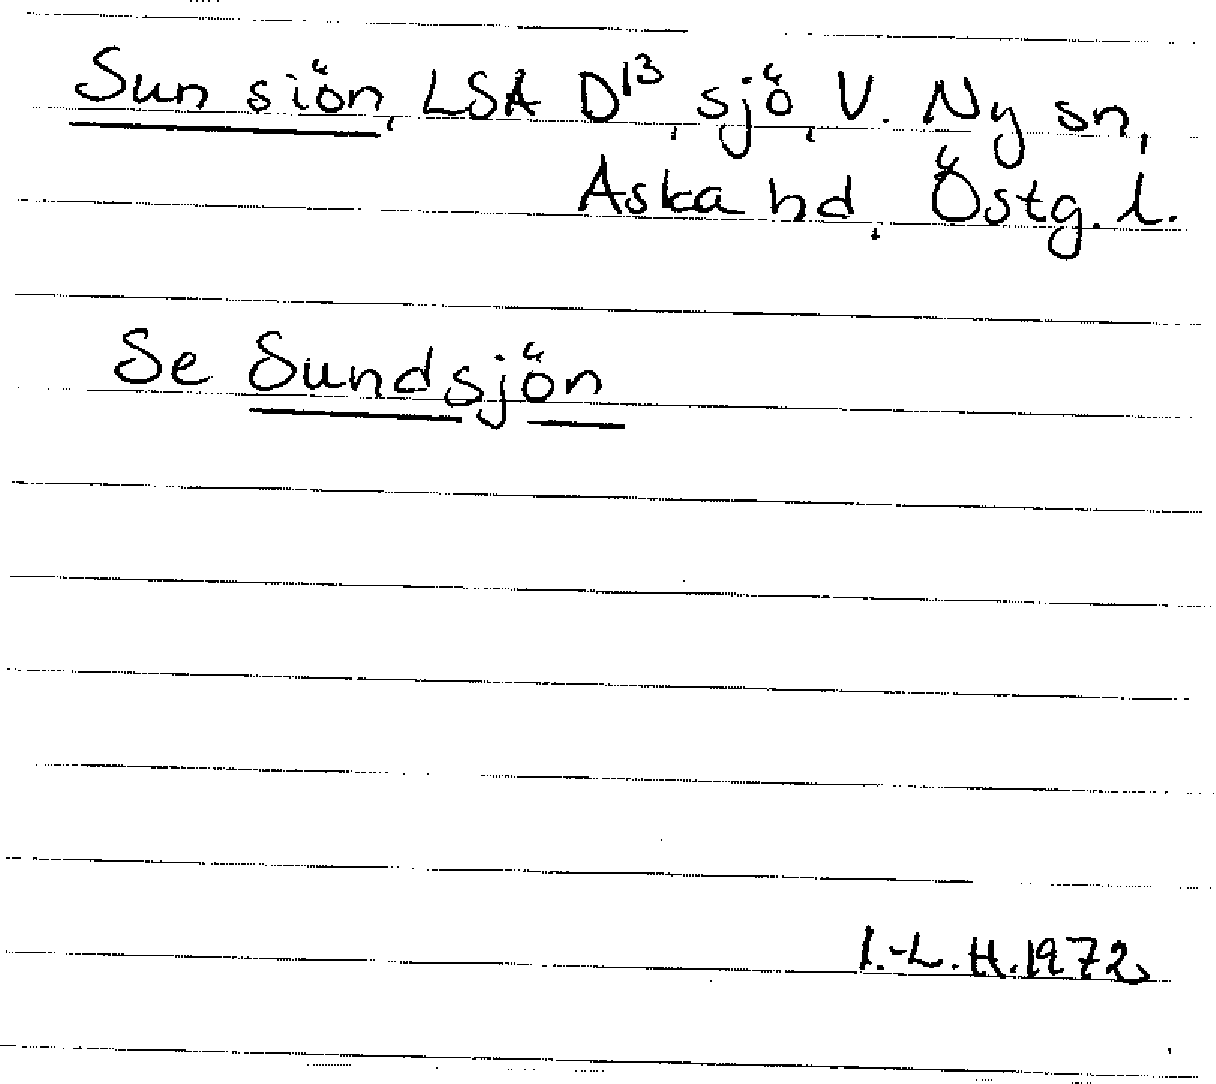 Sun siön, LSA D¹³, sjö, V. Ny sn,
Aska hd, Östg. l.
Se Sundsjön
I.-L. H. 1972